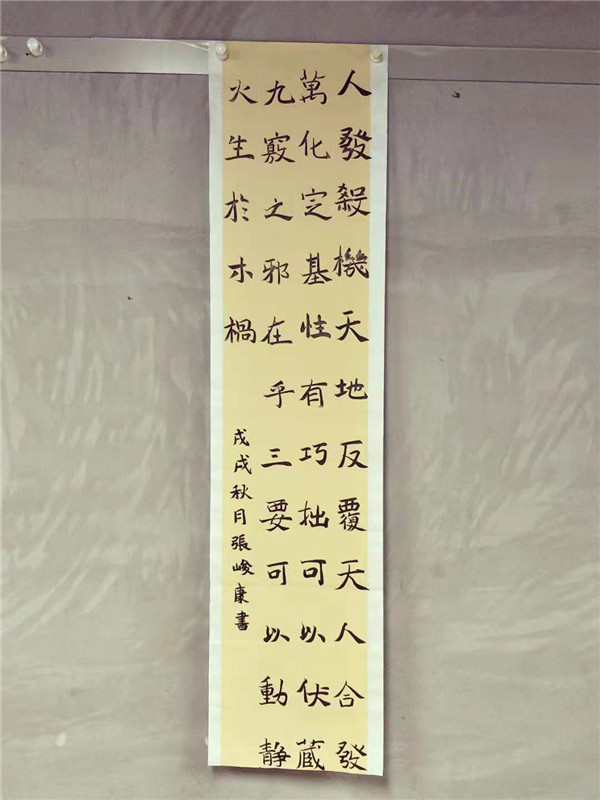 人發殺機天地反覆天人合發
萬化定基性有巧拙可以伏藏
九竅之邪在乎三要可以動靜
火生於木禍
戊戌秋月張峻康書